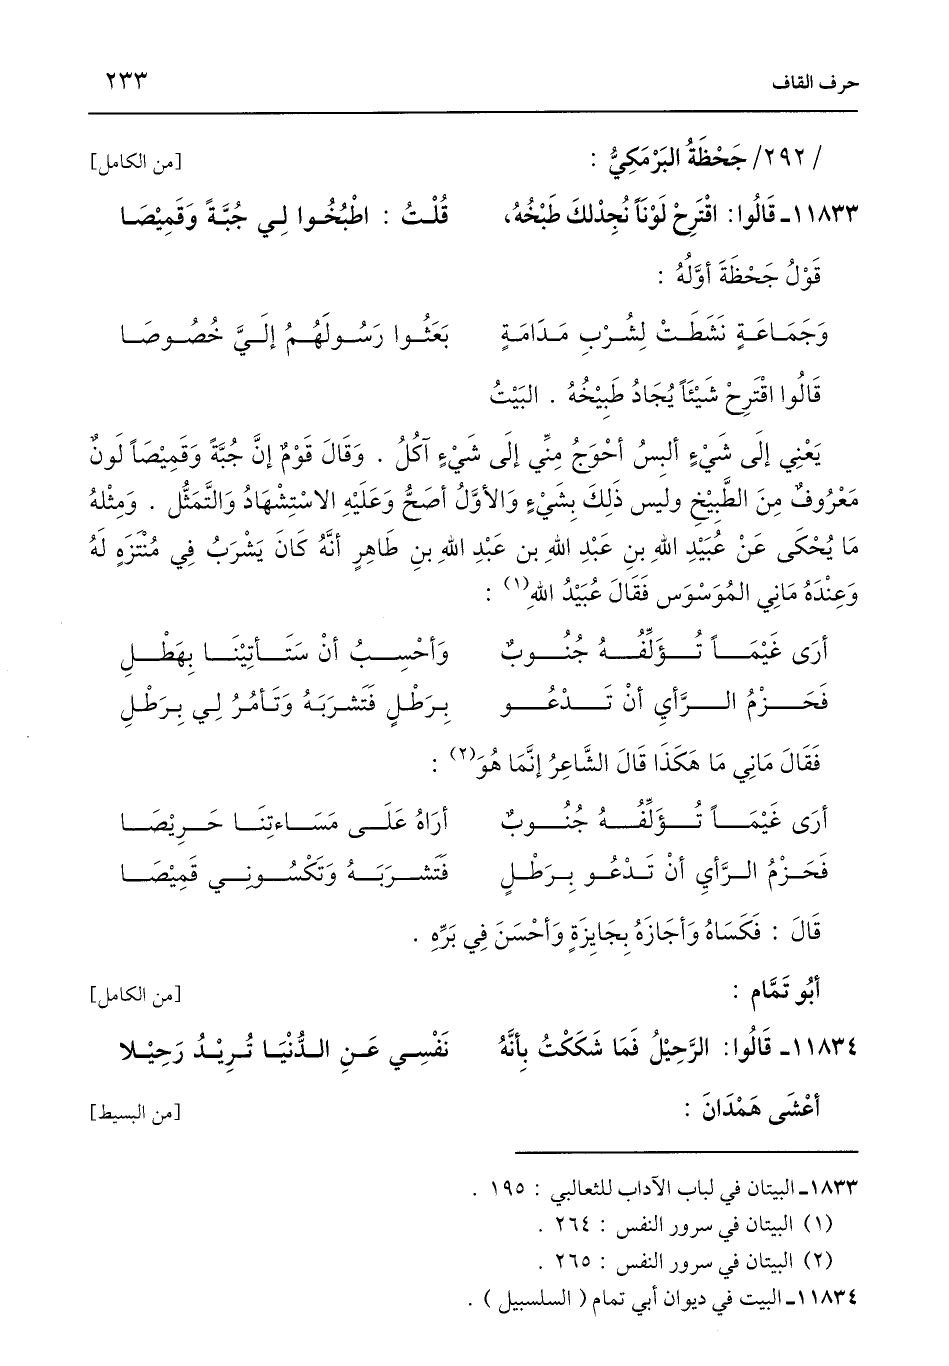 حرف القاف ٢٣٣
/ ٢٩٢/ جَحْظَةُ البَرْمَكِيُّ : [من الكامل]
١١٨٣٣ـ قَالُوا: اقْتَرِحْ لَوْنَاً نُجِدْلكَ طَبْخُهُ، قُلْتُ : اطْبُخُوا لِي جُبَّةً وَقَمِيْصَا
قَوْلُ جَحْظَةَ أوَّلُهُ :
وَجَمَاعَةٍ نَشَطَتْ لِشُرْبِ مَدَامَةٍ بَعَثُوا رَسُولَهُمُ إلَيَّ خُصُوصَا
قَالُوا اقْتَرِحْ شَيْئَاً يُجَادُ طَبِيْخُهُ . البَيْتُ
يَعْنِي إلَى شَيْءٍ ألبسُ أحْوَجُ مِنِّي إلَى شَيْءٍ آكُلُ . وَقَالَ قَوْمٌ إنَّ جُبَّةً وَقَمِيْصَاً لَونٌ
مَعْرُوفٌ مِنَ الطَّبِيْخِ وليس ذَلِكَ بِشَيْءٍ وَالأوَّلُ أصَحُّ وَعَلَيْهِ الاسْتِشْهَادُ وَالتَّمَثُّل . وَمِثْلهُ
مَا يُحْكَى عَنْ عُبَيْدِ اللهِ بنِ عَبْدِ اللهِ بن عَبْدِ اللهِ بنِ طَاهِرٍ أنَّهُ كَانَ يَشْرَبُ فِي مُنْتَزَهٍ لَهُ
وَعِنْدَهُ مَانِي المُوَسْوَس فَقَالَ عُبَيْدُ اللهِ(١) :
أرَى غَيْمَاً تُؤَلِّفُهُ جُنُوبٌ وَأحْسِبُ أنْ سَتَأتِيْنَا بِهَطْلِ
فَحَزْمُ الرَّأيِ أنْ تَدْعُو بِرَطْلٍ فَتَشرَبَهُ وَتَأمُرُ لِي بِرَطْلِ
فَقَالَ مَانِي مَا هَكَذَا قَالَ الشَّاعِرُ إنَّمَا هُوَ(٢) :
أرَى غَيْمَاً تُؤَلِّفُهُ جُنُوبٌ أرَاهُ عَلَى مَسَاءتِنَا حَرِيْصَا
فَحَزْمُ الرَّأيِ أنْ تَدْعُو بِرَطْلٍ فَتَشرَبَهُ وَتَكْسُونِي قَمِيْصَا
قَالَ : فَكَسَاهُ وَأجَازَهُ بِجَايِزَةٍ وَأحْسَنَ فِي بَرِّهِ .
أبُو تَمَّام : [من الكامل]
١١٨٣٤ـ قَالُوا: الرَّحِيْلُ فَمَا شَكَكْتُ بِأنَّهُ نَفْسِي عَنِ الدُّنْيَا تُرِيْدُ رَحِيْلا
أعْشَى هَمْدَانَ : [من البسيط]
١١٨٣٣ـ البيتان في لباب الآداب للثعالبي : ١٩٥ .
(١) البيتان في سرور النفس : ٢٦٤ .
(٢) البيتان في سرور النفس : ٢٦٥ .
١١٨٣٤ـ البيت في ديوان أبي تمام ( السلسبيل ) .